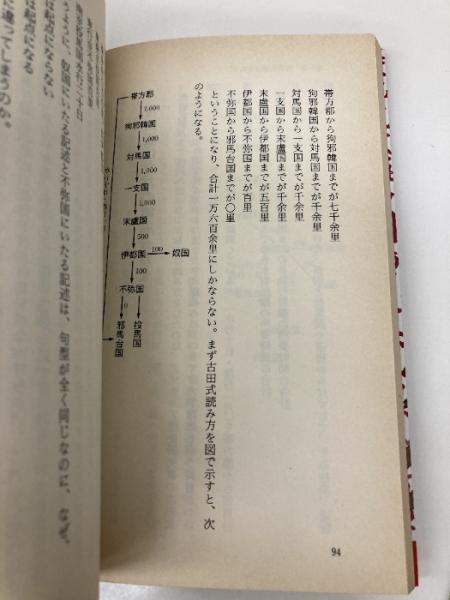 帯方郡から狗邪韓国までが七千余里
狗邪韓国から対馬国までが千余里
対馬国から一支国までが千余里
一支国から末盧国までが千余里
末盧国から伊都国までが五百里
伊都国から不弥国までが百里
不弥国から邪馬台国までが〇里
ということになり、合計一万六百余里にしかならない。まず古田式読み方を図で示すと、次
のようになる。
帯方郡
7,000
狗邪韓国
1,000
対馬国
1,000
一支国
1,000
末盧国
500
伊都国
100
奴国
100
不弥国
0
邪馬台国
投馬国
94
は起点にならない
は起点になる
ように、奴国にいたる記述と不弥国にいたる記述は、句型が全く同じなのに、なぜ、
に違ってしまうのか。